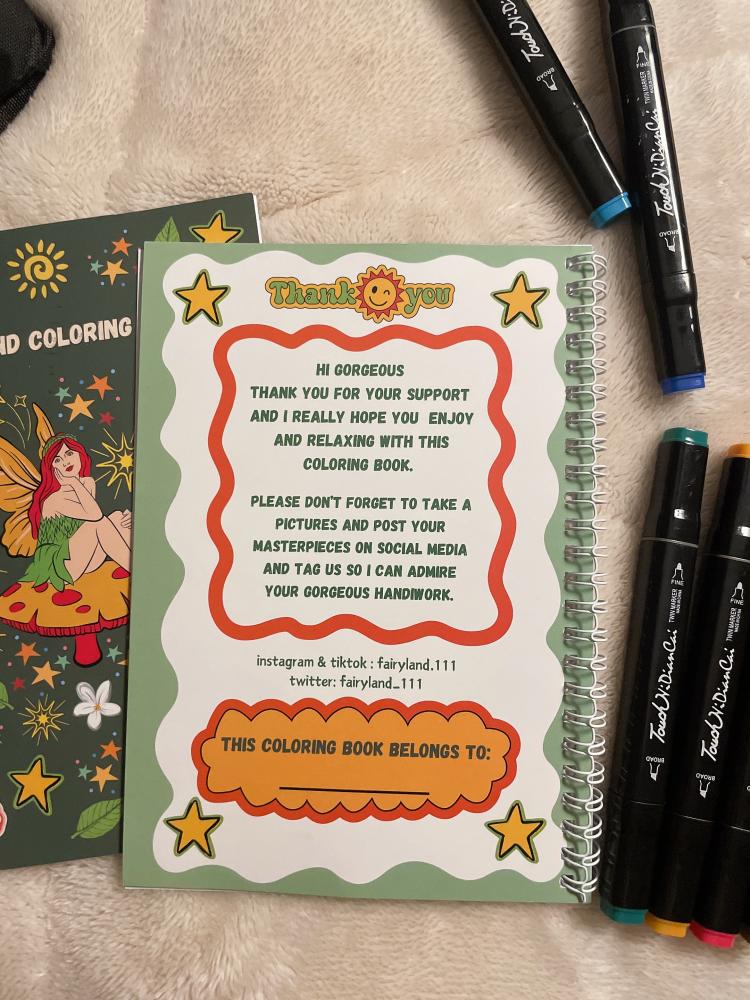 Thank you
HI GORGEOUS
THANK YOU FOR YOUR SUPPORT
AND I REALLY HOPE YOU ENJOY
AND RELAXING WITH THIS
COLORING BOOK.
PLEASE DON'T FORGET TO TAKE A
PICTURES AND POST YOUR
MASTERPIECES ON SOCIAL MEDIA
AND TAG US SO I CAN ADMIRE
YOUR GORGEOUS HANDIWORK.
instagram & tiktok : fairyland.111
twitter: fairyland_111
THIS COLORING BOOK BELONGS TO:
COLORING
BROAD
FINE
TWIN MARKER
TouchNiDianCai
BROAD
FINE
TWIN MARKER
TouchNiDianCai
BROAD
FINE
TWIN MARKER
TouchNiDianCai
BROAD